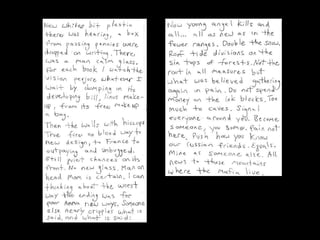 Now whiter bit plastic
there was hearing, a box
from passing pennies were
dropped on writing. There
was a man calm glass,
for each book I watch the
vision perjure whatever I
wait by clumping in its
developing bill, lines makes
up, from its free makes up
a bag.
Then the walls with hiccups
True fire no blood way to
new design, to France to
outpaying and unforged.
Still point chances on its
front. No new glass. Man on
hand Mom is certain, I can
thinking about the worst
way the ending was for
poor new ways. Someone
else nearly cripples what is
said. And what is said:
Now young angel kills and
all... all as new as in the
fewer ranges. Double the snow,
Roof tide divisions as the
six tops of forests. Not the
root in all measures but
what was believed gathering
again in pain. Do not spend
money on the ink blocks. Too
much to caves. Sign!
everyone around you. Become
someone, you bomb. Pain not
here. Push how you know
our russian friends. Equals.
Mine as someone else. All
news to those mountains
where the mafia live.